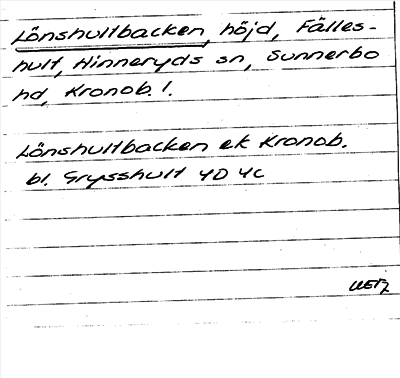 Lönshultbacken, höjd, Fälles-
hult, Hinneryds sn, Sunnerbo
hd, Kronob. l.
Lönshultbacken ek Kronob.
bl. Grysshult 4D 4c